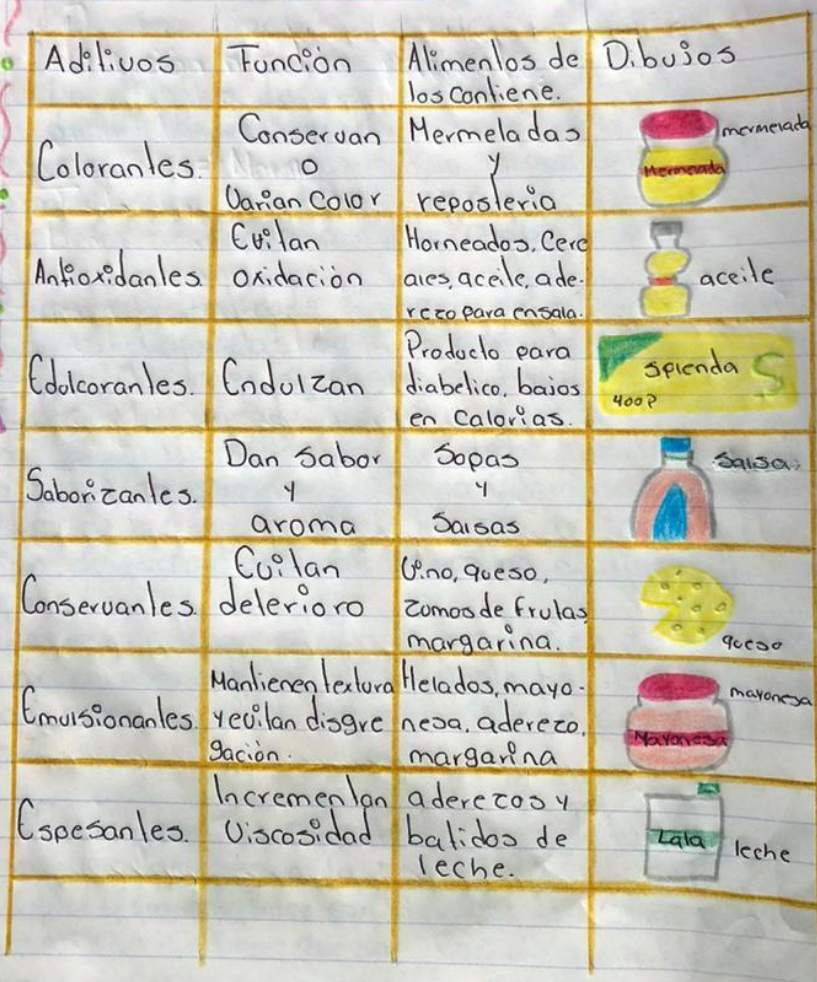 Aditivos
Función
Alimentos de
los contiene.
Dibujos
Colorantes.
Conservan
o
Varian Color
Mermeladas
y
reposteria
mermelada
Mermelada
Antioxidantes
Evitan
oxidación
Horneados, Cere
ales, aceite, ade-
rezo para ensala.
aceite
Edulcorantes.
Endulzan
Producto para
diabetico, bajos
en Calorias.
Splenda S
400P
Saborizantes.
Dan Sabor
y
aroma
Sopas
y
Salsas
Salsa
Conservantes
Evitan
deterioro
Vino, queso,
zumos de frutas
margarina.
queso
Emulsionantes.
Mantienen textura
y evitan disgre
gación.
Helados, mayo-
nesa, aderezo,
margarina
mayonesa
Mayonesa
Espesantes.
Incrementan
Viscosidad
aderezos y
batidos de
leche.
Lala
leche